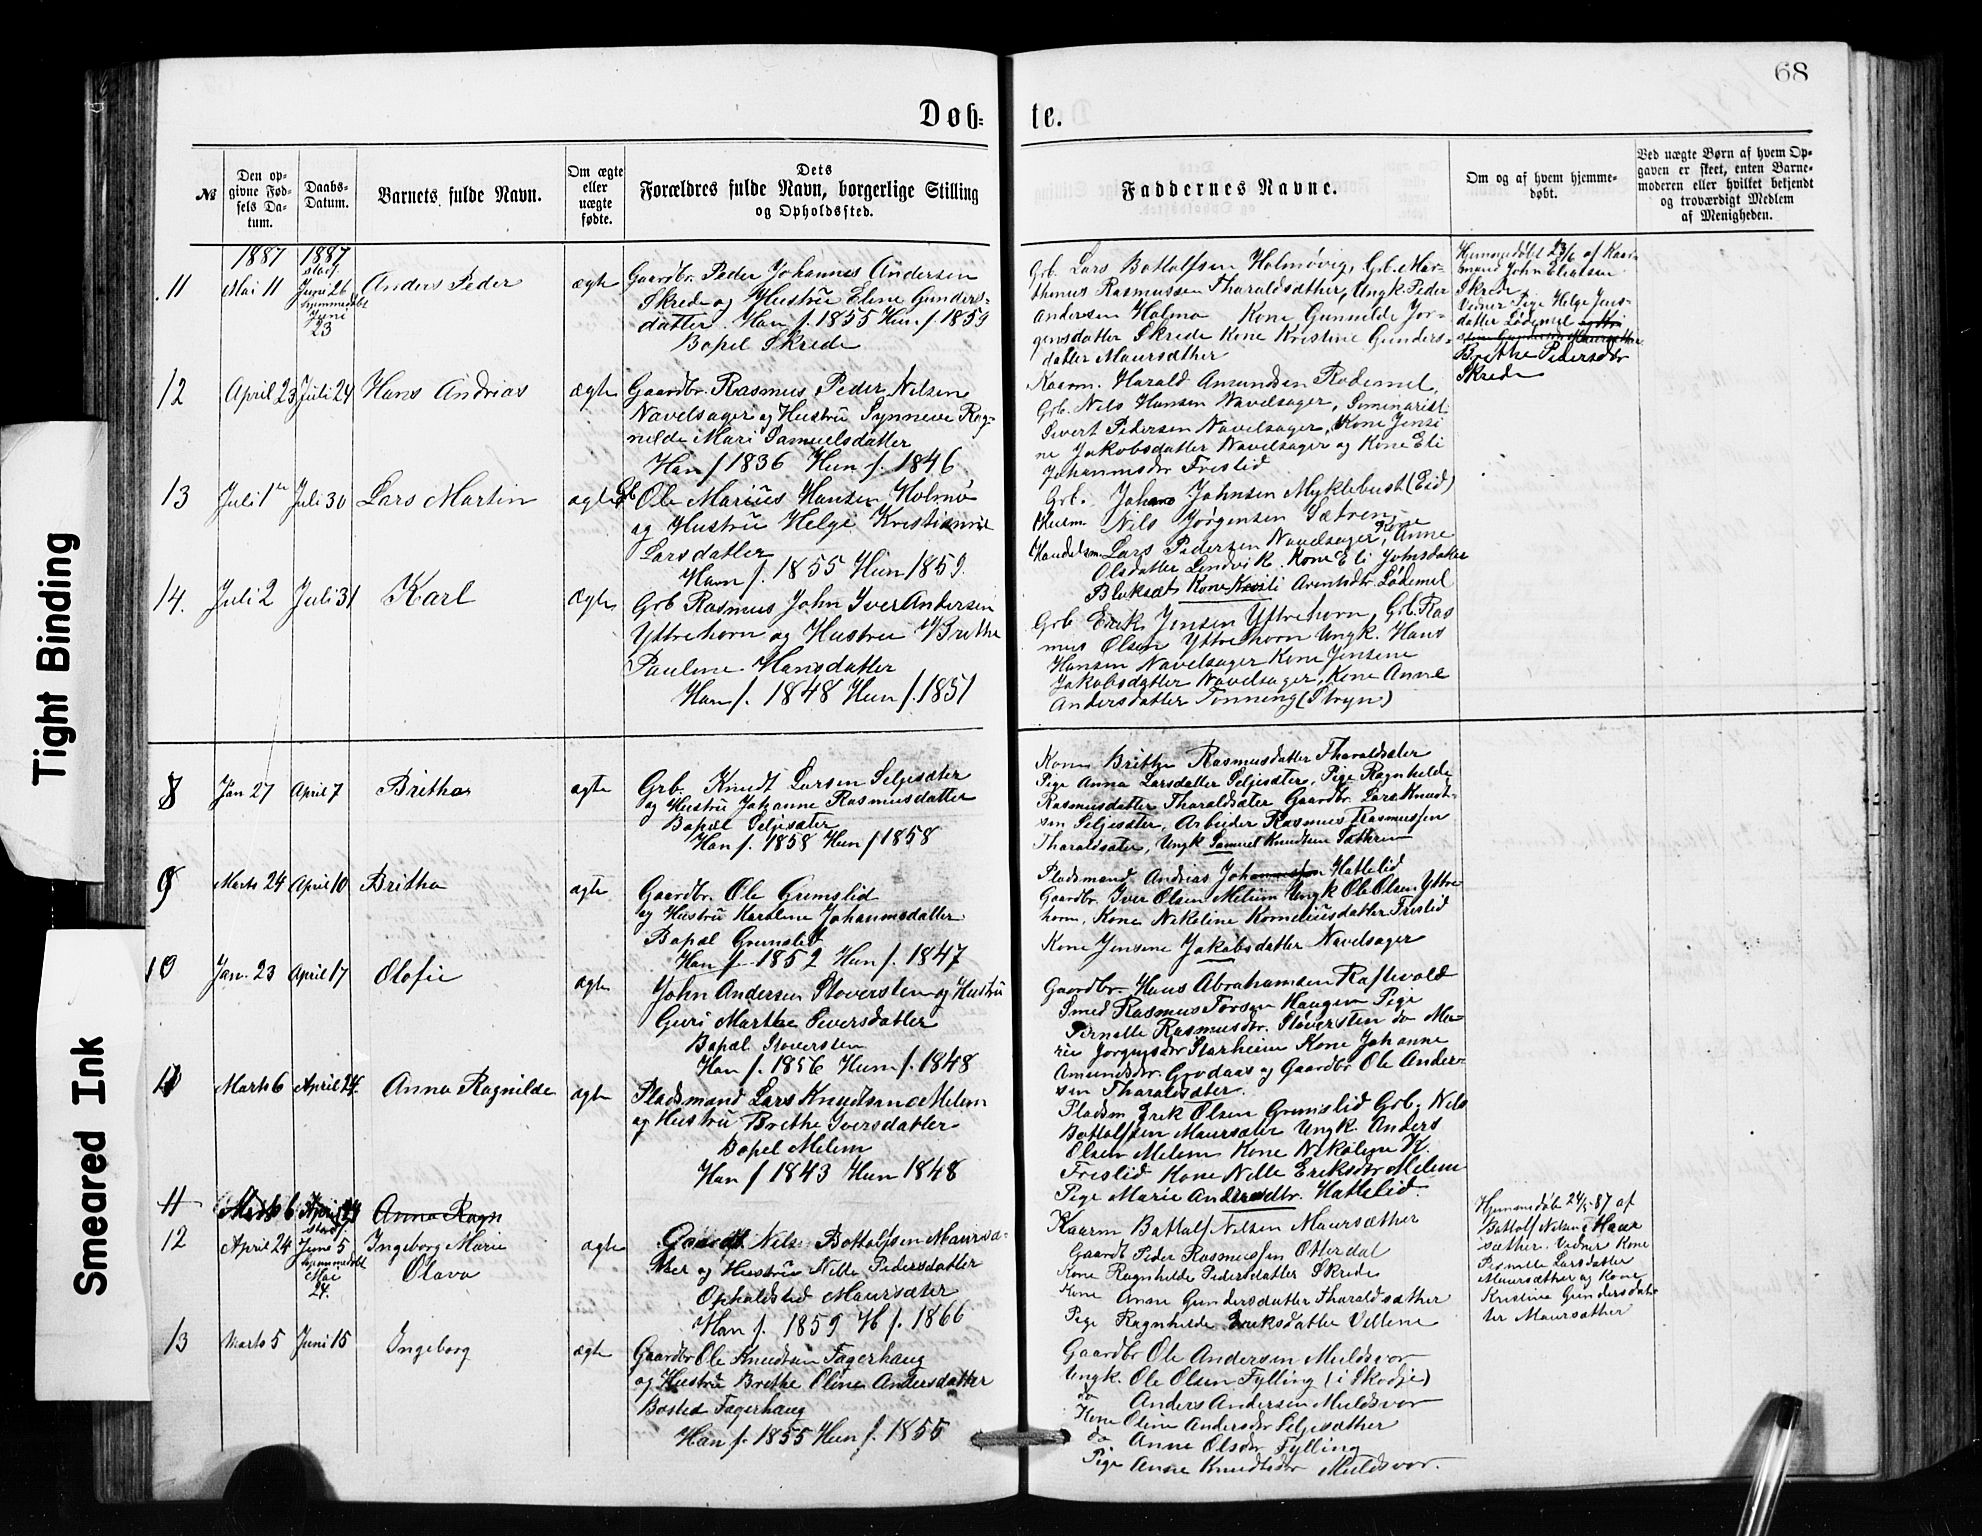 68
Døb-
te.
№
Den op-
givne Fød-
sels Da-
tum.
Daabs-
Datum.
Barnets fulde Navn.
Om ægte
eller
uægte
fødte.
Dets
Forældres fulde Navn, borgerlige Stilling
og Opholdssted.
Faddernes Navne.
Om og af hvem hjemme-
døbt.
Ved uægte Børn af hvem Op-
gaven er skeet, enten Barne-
moderen eller hvilket betjendt
og troværdigt Medlem
af Menigheden.
1887
1887
11
Mai 11
Juni 26
Juni
23
Anders Peder
ægte
Gaardbr. Peder Johannes Andersen
Skrede og Hustru Eline Gunders-
datter. Han f. 1855 Hun f. 1859
Bopel Skrede
Grb. Lars Bottolfsen Holmøvig, Grb. Mar-
thinus Rasmussen Tharaldsæther, Ungk. Peder
Andersen Holmø Kone Gunnilde Jor-
gensdatter Skrede Kone Kristine Gunders-
datter Maursæther
Hjemmedøbt 23/6 af Kaar-
mand John Eliassen
Skrede
Vidner Pige Helge Jens-
datter Lødemel
Brithe Pedersdtr
Skrede
12
April 23
Juli 24
Hans Andreas
ægte
Gaardbr. Rasmus Peder Nelsen
Navelsager og Hustru Synneve Rag-
nilde Mari Samuelsdatter
Han f 1836 Hun f. 1846
Kaarm. Harald Amundsen Rødemel,
Grb. Nils Hansen Navelsager, Seminarist
Sivert Pedersen Navelsager, Kone Jensi-
ne Jakobsdatter Navelsager og Kone Eli
Johannesdr Frislid
13
Juli 1
Juli 30
Lars Martin
ægte
Gb Ole Marius Hansen Holmø
og Hustru Helge Kristianne
Larsdatter
Han f. 1855 Hun 1859.
Grb. Johan Johnsen Myklebust (Eid)
Husm Nils Jørgensen Sætren
Handelsm. Lars Pedersen Navelsager, Kone Anne
Olsdatter Lendvik. Kone Eli Johnsdater
Bleksæt Kone Kristi Arentsdtr Lødemel
14.
Juli 2
Juli 31
Karl
Ægte
Grb Rasmus John Iver Andersen
Yttrehorn og Hustru Brithe
Pauline Hansdatter
Han f. 1848 Hun f. 1851
Grb Erik Jensen Yttrehorn, Grb. Ras
mus Olsen Yttrehorn Ungk. Hans
Hansen Navelsager Kone Jensene
Jakobsdatter Navelsager, Kone Anne
Andersdatter Tonning (Stryn)
8
Jan 27
April 7
Britha
ægte
Grb. Knudt Larsen Seljesæter
og Hustru Johanne Rasmusdatter
Bopæl Seljesæter
Han f. 1858 Hun f 1858
Kone Brithe Rasmusdatter Tharaldsæter
Pige Anna Larsdatter Seljesæter, Pige Ragnhilde
Rasmusdatter Tharaldsæter Gaardbr. Lars Knudt-
sen Seljesæter, Arbeider Rasmus Rasmussen
Tharaldsæter, Ungk Samuel Knudtsen Sætren
9
Marts 24
April 10
Britha
ægte
Gaardbr. Ole Grimslid
og Hustru Karoline Johannesdatter
Bopæl Grimslid
Han f 1852 Hun f. 1847
Pladsmand Andrias Johannessen Hattelid
Gaardbr. Iver Olsen Melum Ungk Ole Olsen Yttre
horn, Kone Nikoline Korneliusdatter Frislid
Kone Jensine Jakobsdatter Navelsager
10
Jan. 23
April 17
Olofie
ægte
John Andersen Støversten og Hustru
Guri Marthe Siversdatter
Bopæl Støversten
Han f. 1856 Hun f. 1848
Gaardbr. Hans Abrahamsen Raftevold
Smed Rasmus Torsen Haugen Pige
Pernelle Rasmusdr. Støversten do Ma-
rie Jorgensdr Starheim Kone Johanne
Amundsdr. Grodaas og Gaardbr Ole Ander-
sen Tharaldsæter.
11
Marts 6
April 24
Anna Ragnilde
ægte
Pladsmand Lars Knudtsen Melem
og Hustru Brithe Iversdatter
Bopel Melem
Han f 1843 Hun 1848
Pladsm Erik Olsen Grimslid Grb. Nils
Bottolfsen Maursæter Ungk. Anders
Olsen Melem Kone Nikoline K.
Frislid Kone Nille Eriksdr Melem
Pige Marie Andersdtr. Hattelid.
11
Marts 6
April 24
Anna Ragn
12
April 24
Juni 5
Mai
24.
Ingeborg Marie
Olava
ægte
Gaardb Nils Bottolfsen Maursæ-
ther og Hustru Nille Pedersdatter
Opholdsted Maursæter
Han f. 1859 H f. 1866
Kaarm Bottolf Nilsen Maursæther
Gaardb Peder Rasmussen Otterdal
Kone Ragnhilde Pedersdatter Skrede
Kone Anne Gundersdatter Tharaldsæther
Pige Ragnhilde Eriksdatter Vellene
Hjemmedøbt 24/5-87 af
Bottolf Nilsen Maur
sæther. Vidner Kone
Pernille Larsdatter
Maursæther og Kone
Kristine Gundersdat-
ter Maursæther
13
Marts 5
Juni 15
Ingeborg
ægte
Gaardbr Ole Knudtsen Fagerhaug
og Hustru Brithe Oline Andersdatter
Bosted Fagerhaug
Han f. 1855 Hun f. 1855
Gaardbr Ole Andersen Muldsvor
Ungk. Ole Olsen Fylling (i Skodje)
do Anders Andersen Muldsvor
Kone Oline Andersdr Seljesæther
do Anne Olsdr Fylling
Pige Anne Knudtsdr Muldsvor.
Tight Binding
Smeared Ink